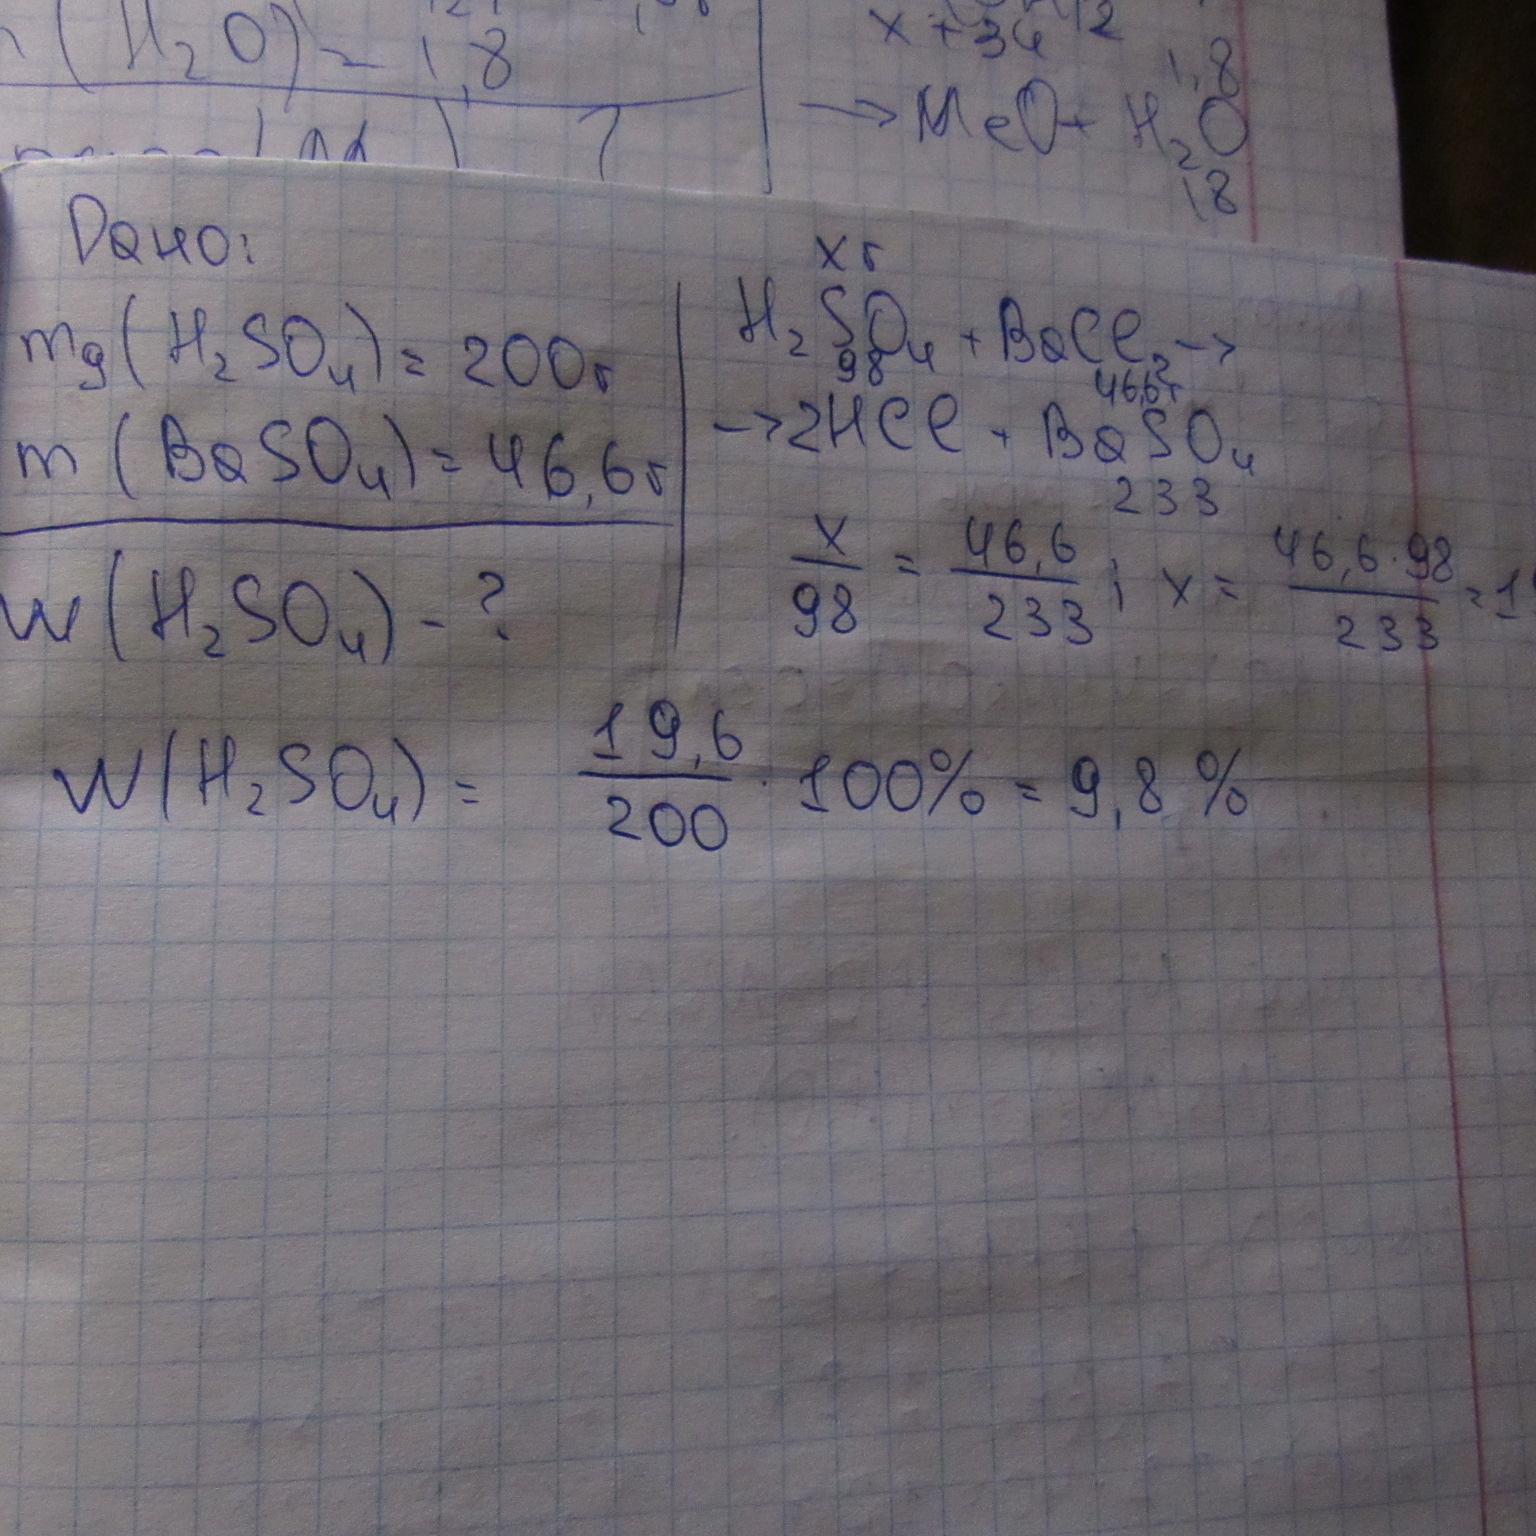 (H₂O) = 1,8
x + 34
1,8
→ MeO + H₂O
18
Дано:
mg(H₂SO₄) = 200г
m(BaSO₄) = 46,6г
w(H₂SO₄) - ?
xг
H₂SO₄ + BaCl₂ →
98
46,6г
→ 2HCl + BaSO₄
233
x/98 = 46,6/233 ; x = 46,6·98/233 = 1
w(H₂SO₄) = 19,6/200 · 100% = 9,8 %